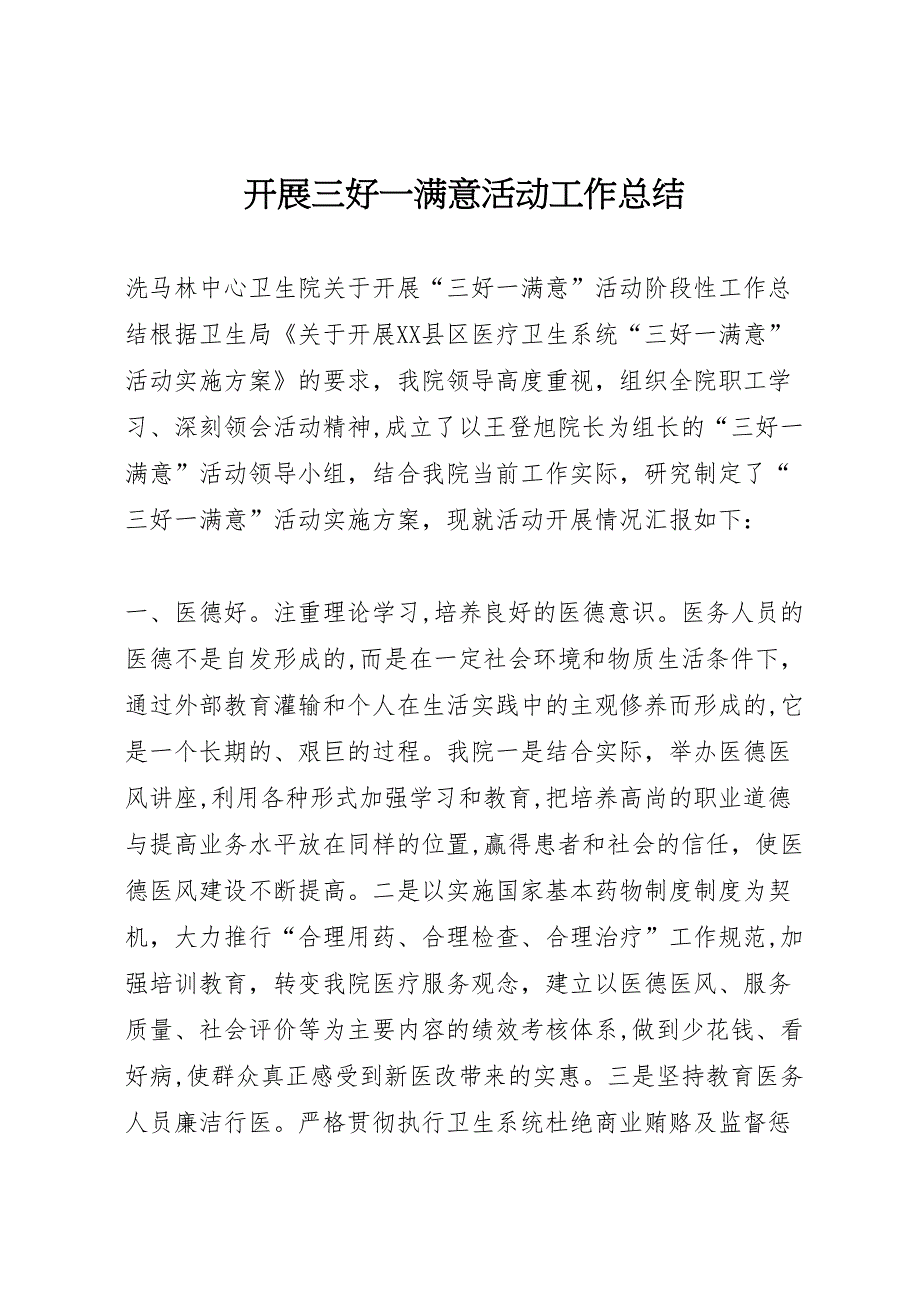 开展三好一满意活动工作总结
洗马林中心卫生院关于开展“三好一满意”活动阶段性工作总
结根据卫生局《关于开展XX县区医疗卫生系统“三好一满意”
活动实施方案》的要求，我院领导高度重视，组织全院职工学
习、深刻领会活动精神,成立了以王登旭院长为组长的“三好一
满意”活动领导小组，结合我院当前工作实际，研究制定了“
三好一满意”活动实施方案，现就活动开展情况汇报如下：
一、医德好。注重理论学习,培养良好的医德意识。医务人员的
医德不是自发形成的,而是在一定社会环境和物质生活条件下，
通过外部教育灌输和个人在生活实践中的主观修养而形成的,它
是一个长期的、艰巨的过程。我院一是结合实际，举办医德医
风讲座,利用各种形式加强学习和教育,把培养高尚的职业道德
与提高业务水平放在同样的位置,赢得患者和社会的信任，使医
德医风建设不断提高。二是以实施国家基本药物制度制度为契
机，大力推行“合理用药、合理检查、合理治疗”工作规范,加
强培训教育，转变我院医疗服务观念，建立以医德医风、服务
质量、社会评价等为主要内容的绩效考核体系,做到少花钱、看
好病,使群众真正感受到新医改带来的实惠。三是坚持教育医务
人员廉洁行医。严格贯彻执行卫生系统杜绝商业贿赂及监督惩